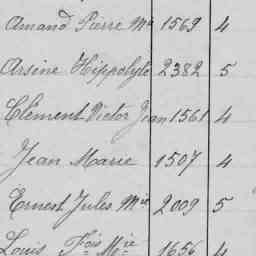 Amand Pierre Me 1569 4
Arsène Hippolyte 2382 5
Clément Victor Jean 1561 4
Jean Marie 1507 4
Ernest Jules Mie 2009 5
Louis Fois Mie 1656 4